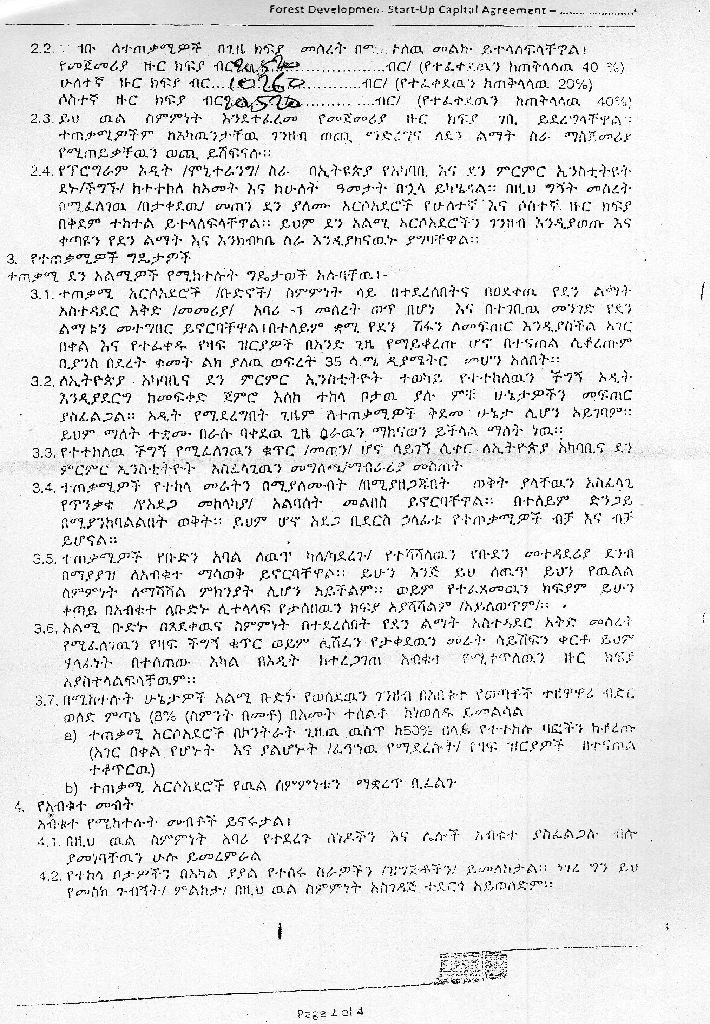 Forest Development Start-Up Capital Agreement –
2.2. ገቡ ለተጠቃሚዎች በጊዜ ክፍያ መሰረት በሚ ከሰዉ መልኩ ይተላለፍላቸዋል፤
የመጀመሪያ ዙር ክፍያ ብር 20,520 ብር/ (የተፈቀደዉን ከጠቅላላዉ 40 %)
ሁለተኛ ዙር ክፍያ ብር 10260 ብር/ (የተፈቀደዉን ከጠቅላላዉ 20%)
ሶስተኛ ዙር ክፍያ ብር 20,520 ብር/ (የተፈቀደዉን ከጠቅላላዉ 40%)
2.3. ይህ ዉል ስምምነት እንደተፈረመ የመጀመሪያ ዙር ክፍያ ገቢ ይደረግላቸዋል፡
ተጠቃሚዎችም ከአካዉንታቸዉ ገንዘብ ወጪ ማድረግና ለደን ልማት ስራ ማስጀመሪያ
የሚጠይቃቸዉን ወጪ ይሸፍናሉ፡፡
2.4. የፕሮግራም ኦዲት /ሞኒተሪንግ/ ስራ በኢትዮጵያ የአካባቢ እና ደን ምርምር ኢንስቲትዩት
ደኑ/ችግኙ/ ከተተከለ ከአመት እና ከሁለት ዓመታት በኋላ ይካሄዳል፡፡ በዚህ ግኝት መሰረት
በሚፈለገዉ /በታቀደዉ/ መጠን ደን ያለሙ አርሶአደሮች የሁለተኛ እና ሶስተኛ ዙር ክፍያ
በቀደም ተከተል ይተላለፍላቸዋል፡፡ ይህም ደን አልሚ አርሶአደሮችን ገንዘብ እንዲያወጡ እና
ቀጣዩን የደን ልማት እና እንክብካቤ ስራ እንዲያከናዉኑ ያግዛቸዋል፡፡
3. የተጠቃሚዎች ግዴታዎች
ተጠቃሚ ደን አልሚዎች የሚከተሉት ግዴታወች አሉባቸዉ፤-
3.1. ተጠቃሚ አርሶአደሮች /ቡድኖች/ ስምምነት ላይ በተደረሰበትና በፀደቀዉ የደን ልማት
አስተዳደር እቅድ /መመሪያ/ አባሪ -1 መሰረት ወጥ በሆነ እና በተገቢዉ መንገድ የደን
ልማቱን መተግበር ይኖርባቸዋል፤በተለይም ቋሚ የደን ሽፋን ለመፍጠር እንዲያስችል አገር
በቀል እና የተፈቀዱ የዛፍ ዝርያዎች በአንድ ጊዜ የማይቆረጡ ሆኖ በተናጠል ሲቆረጡም
ቢያንስ በደረት ቁመት ልክ ያለዉ ወፍረት 35 ሴ.ሜ ዲያሜትር መሆን አለበት፡፡
3.2. ለኢትዮጵያ አካባቢና ደን ምርምር ኢንስቲትዮት ተወካይ የተተከለዉን ችግኝ ኦዲት
እንዲያደርግ ከመፍቀድ ጀምሮ እስከ ተከላ ቦታዉ ያሉ ምቹ ሁኔታዎችን መፍጠር
ያስፈልጋል፡፡ ኦዲት የሚደረግበት ጊዜም ለተጠቃሚዎች ቅድመ ሁኔታ ሊሆን አይገባም፡፡
ይህም ማለት ተቋሙ በራሱ ባቀደዉ ጊዜ ስራዉን ማከናወን ይችላል ማለት ነዉ፡፡
3.3. የተተከለዉ ችግኝ የሚፈለገዉን ቁጥር /መጠን/ ሆኖ ሳይገኝ ሲቀር ለኢትዮጵያ አካባቢና ደን
ምርምር ኢንስቲትዮት አስፈላጊዉን መግለጫ/ማብራሪያ መስጠት
3.4. ተጠቃሚዎች የተከላ መሬትን በሚያለሙበት /በሚያዘጋጁበት ወቅት ያላቸዉን አስፈላጊ
የጥንቃቄ /የአደጋ መከላከያ/ አልባሳት መልበስ ይኖርባቸዋል፡፡ በተለይም ድንጋይ
በሚያንከባልልበት ወቅት፡፡ ይህም ሆኖ አደጋ ቢደርስ ኃላፊቱ የተጠቃሚዎች ብቻ እና ብቻ
ይሆናል፡፡
3.5. ተጠቃሚዎች የቡድን አባል ለዉጥ ካለ/ካደረጉ/ የተሻሻለዉን የቡድን መተዳደሪያ ደንብ
በማያያዝ ለአብቁተ ማሳወቅ ይኖርባቸዋል፡፡ ይሁን እንጅ ይህ ለዉጥ ይህን የዉልል
ስምምነት ለማሻሻል ምክንያት ሊሆን አይችልም፡፡ ወይም የተፈጸመዉን ክፍያም ይሁን
ቀጣይ በአብቁተ ለቡድኑ ሊተላለፍ የታሰበዉን ክፍያ አያሻሽልም /አይለወጥም/፡፡
3.6. አልሚ ቡድኑ በጸደቀዉና ስምምነት በተደረሰበት የደን ልማት አስተዳደር እቅድ መሰረት
የሚፈለገዉን የዛፍ ችግኝ ቁጥር ወይም ሊሸፈን የታቀደዉን መሬት ሳይሸፍን ቀርቶ ይህም
ሃላፊነት በተሰጠዉ አካል በኦዲት ከተረጋገጠ አብቁተ የሚቀጥለዉን ዙር ክፍያ
አያስተላልፍላቸዉም፡፡
3.7. በሚከተሉት ሁኔታዎች አልሚ ቡድኑ የወሰደዉን ገንዘብ በአብቁተ የወጣቶች ተዘዋዋሪ ብድር
ወለድ ምጣኔ (8% (ስምንት በመቶ) በአመት ተሰልቶ ከነወለዱ ይመልሳል
a) ተጠቃሚ አርሶአደሮች በኮንትራት ጊዜዉ ዉስጥ ከ50% በላይ የተተከሉ ዛፎችን ከቆረጡ
(አገር በቀል የሆኑት እና ያልሆኑት /ፈጥነዉ የሚደርሱት/ የዛፍ ዝርያዎች በተናጠል
ተቆጥርዉ)
b) ተጠቃሚ አርሶአደሮች የዉል ስምምነቱን ማቋረጥ ቢፈልጉ
4. የአብቁተ መብት
አብቁተ የሚከተሉት መብቶች ይኖሩታል፤
4.1. በዚህ ዉል ስምምነት አባሪ የተደረጉ ሰነዶችን እና ሌሎች አብቁተ ያስፈልጋሉ ብሎ
ያመነባቸዉን ሁሉ ይመረምራል
4.2. የተከላ ቦታዎችን በአካል ያያል የተሰሩ ስራዎችን /ዝግጅቶችን/ ይመለከታል፡፡ ነገረ ግን ይህ
የመስክ ጉብኝት/ ምልከታ/ በዚህ ዉል ስምምነት አስገዳጅ ተደርጎ አይወሰድም፡፡
Page 2 of 4